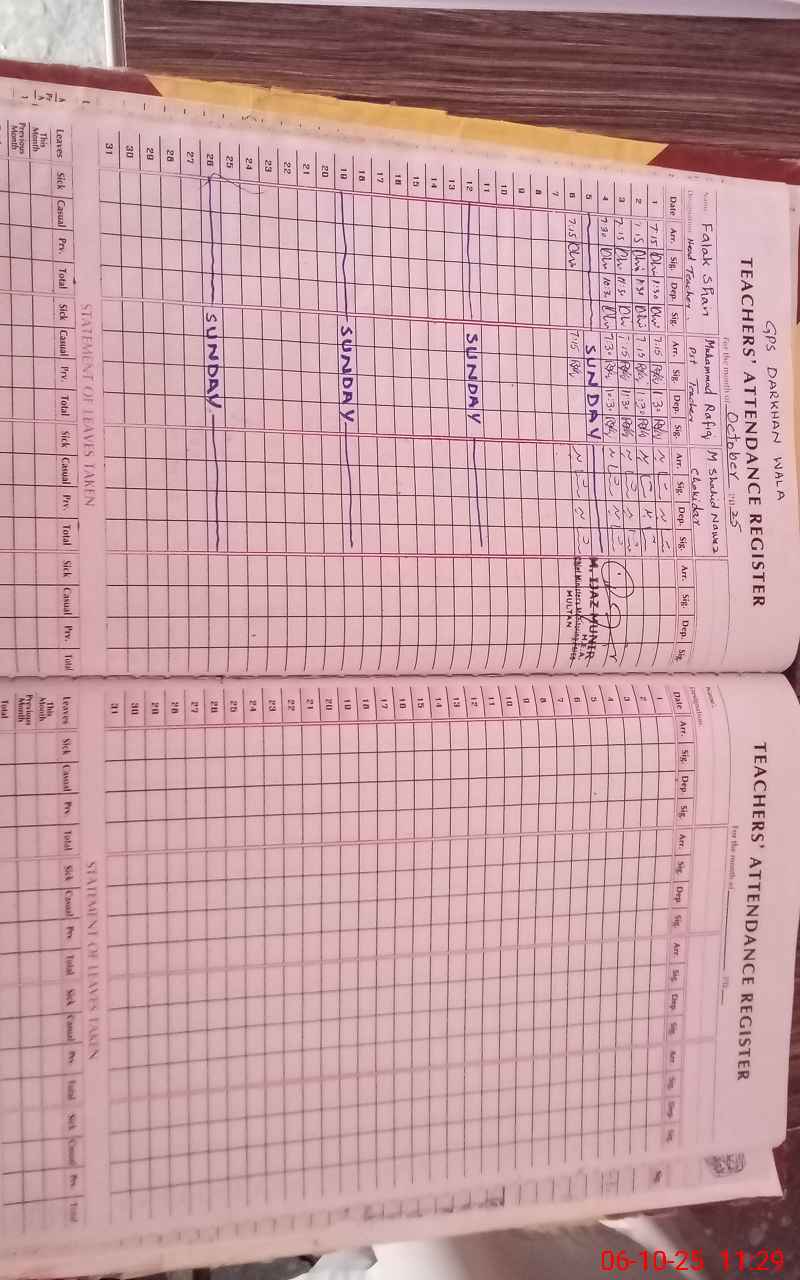 GPS DARKHAN WALA
TEACHERS' ATTENDANCE REGISTER
For the month of October 2025
Name Falak Sher Muhammad Rafiq M Shahid Nawaz
Designation Head Teacher. Pst Teacher Chokidar
Date Arr. Sig. Dep. Sig. Arr. Sig. Dep. Sig. Arr. Sig. Dep. Sig. Arr. Sig. Dep. Sig.
1 7.15 1:30 7.15 1.30
2 7.15 7.15
3 7.15 7.15 11.30
4 7.30 7.30
5 SUNDAY
6 7.15 7.15
M. IJAZ MUNIR
M.E.A.
MULTAN
7
8
9
10
11
12 SUNDAY
13
14
15
16
17
18
19 SUNDAY
20
21
22
23
24
25
26 SUNDAY
27
28
29
30
31
STATEMENT OF LEAVES TAKEN
Leaves Sick Casual Prv. Total Sick Casual Prv. Total Sick Casual Prv. Total Sick Casual Prv. Total
This Month
Previous Month
TEACHERS' ATTENDANCE REGISTER
For the month of
Name
Designation
Date Arr. Sig. Dep. Sig. Arr. Sig. Dep. Sig. Arr. Sig. Dep. Sig. Arr. Sig. Dep. Sig.
1
2
3
4
5
6
7
8
9
10
11
12
13
14
15
16
17
18
19
20
21
22
23
24
25
26
27
28
29
30
31
STATEMENT OF LEAVES TAKEN
Leaves Sick Casual Prv. Total Sick Casual Prv. Total Sick Casual Prv. Total Sick Casual Prv. Total
This Month
Previous Month
Total
06-10-25 11:29